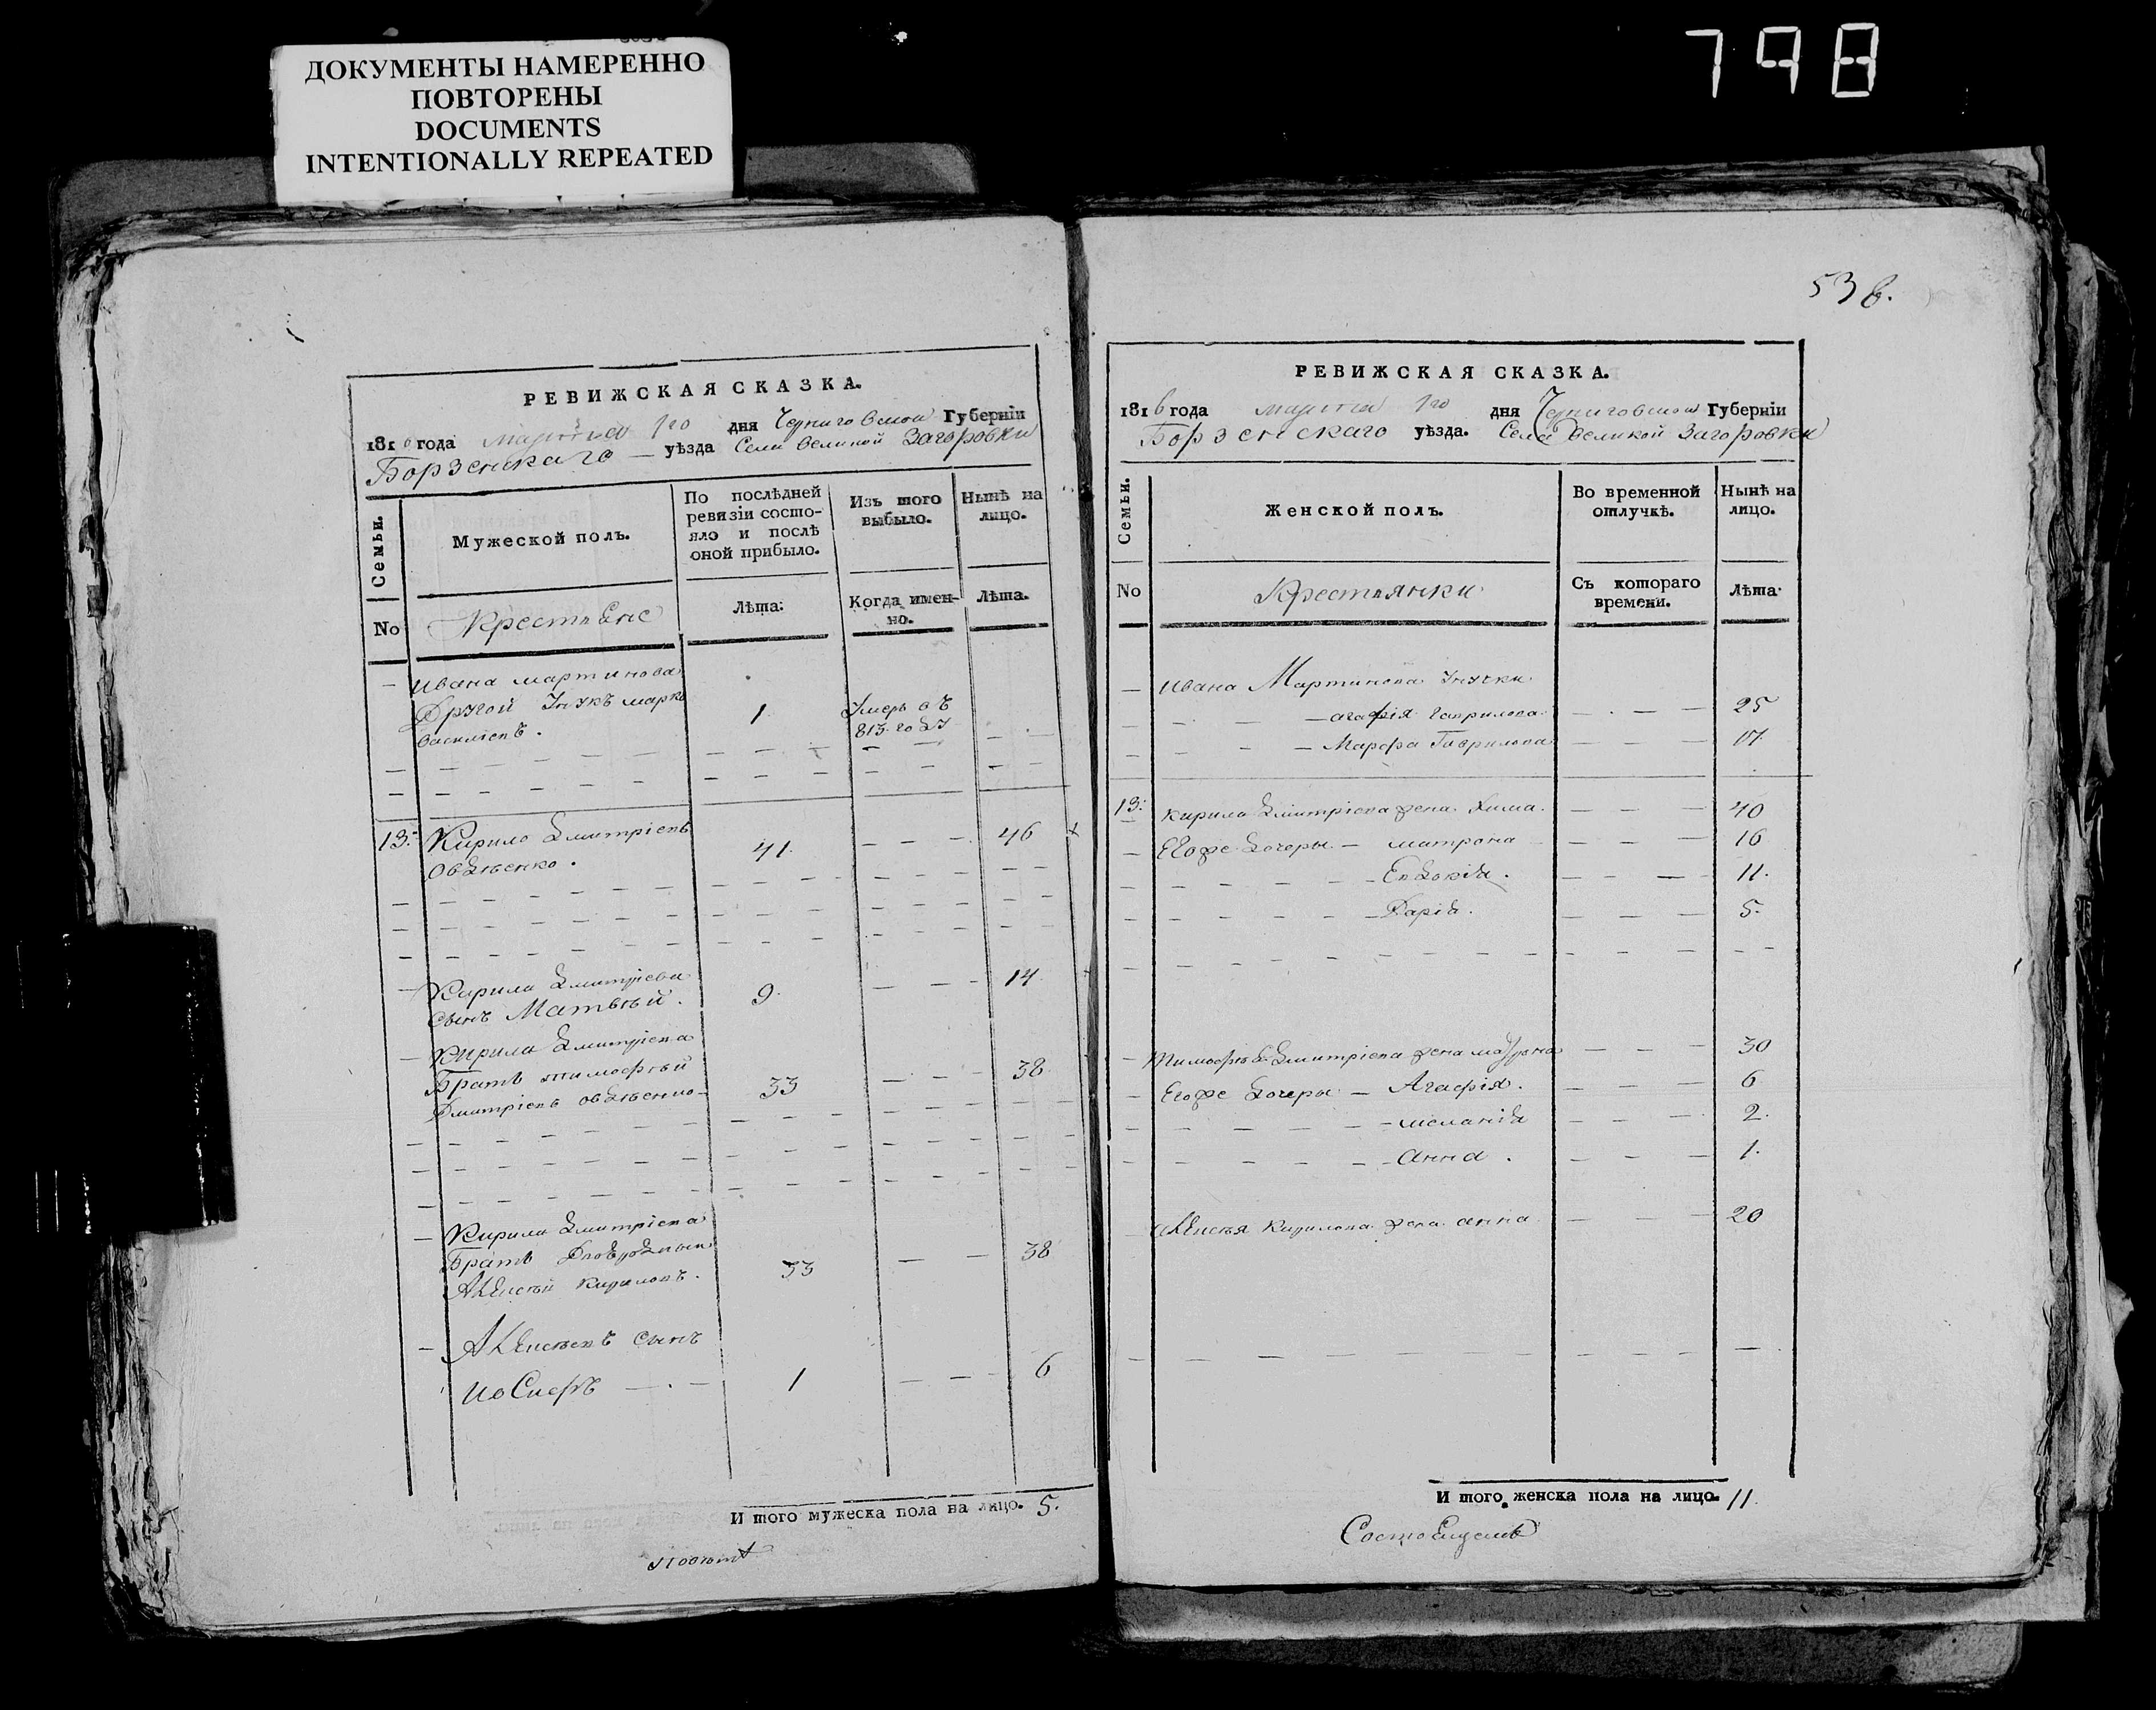 ДОКУМЕНТЫ НАМЕРЕННО
ПОВТОРЕНЫ
DOCUMENTS
INTENTIONALLY REPEATED
798
РЕВИЖСКАЯ СКАЗКА.
1816 года марта 1го дня Черниговской Губерніи
Борзенскаго уѣзда Села Великой Загоровки
Семьи.
Мужеской полъ.
По послѣдней
ревизіи состо-
яло и послѣ
оной прибыло.
Изъ того
выбыло.
Нынѣ на
лицо.
No
Крестьяне
Лѣта:
Когда имен-
но.
Лѣта.
Ивана мартинова
Другой Унукъ марко 1 Умеръ въ
василіевъ. 813 году
13. Кирило Дмитріевъ 41. 46
Овдѣенко.
Кирила Дмитріева 14
сынъ Матвѣй. 9.
Кирила Дмитріева
Братъ тимофѣй 33 38
Дмитріевъ овдѣенко
Кирила Дмитріева
Братъ Двоюродный 38
Алексѣй Кириловъ. 33
Алексѣевъ сынъ
иосифъ 1 6
И того мужеска пола на лицо. 5.
536.
РЕВИЖСКАЯ СКАЗКА.
1816 года марта 1го дня Черниговской Губерніи
Борзенскаго уѣзда. Села Великой Загоровки
Семьи.
Женской полъ.
Во временной
отлучкѣ.
Нынѣ на
лицо.
No
Крестьянки
Съ котораго
времени.
Лѣта.
Ивана Мартинова Унуки
агафія Гаврилова 25
Марфа Гаврилова 17.
13. Кирила Дмитріева жена Хима. 40
Егоже Дочеры матрона 16
Евдокія. 11.
Дарія. 5.
Тимофѣя Дмитріева жена 30
Егоже Дочеры Агафія. 6
меланія 2.
анна. 1.
алексѣя Кирилова жена анна 20
И того женска пола на лицо. 11.